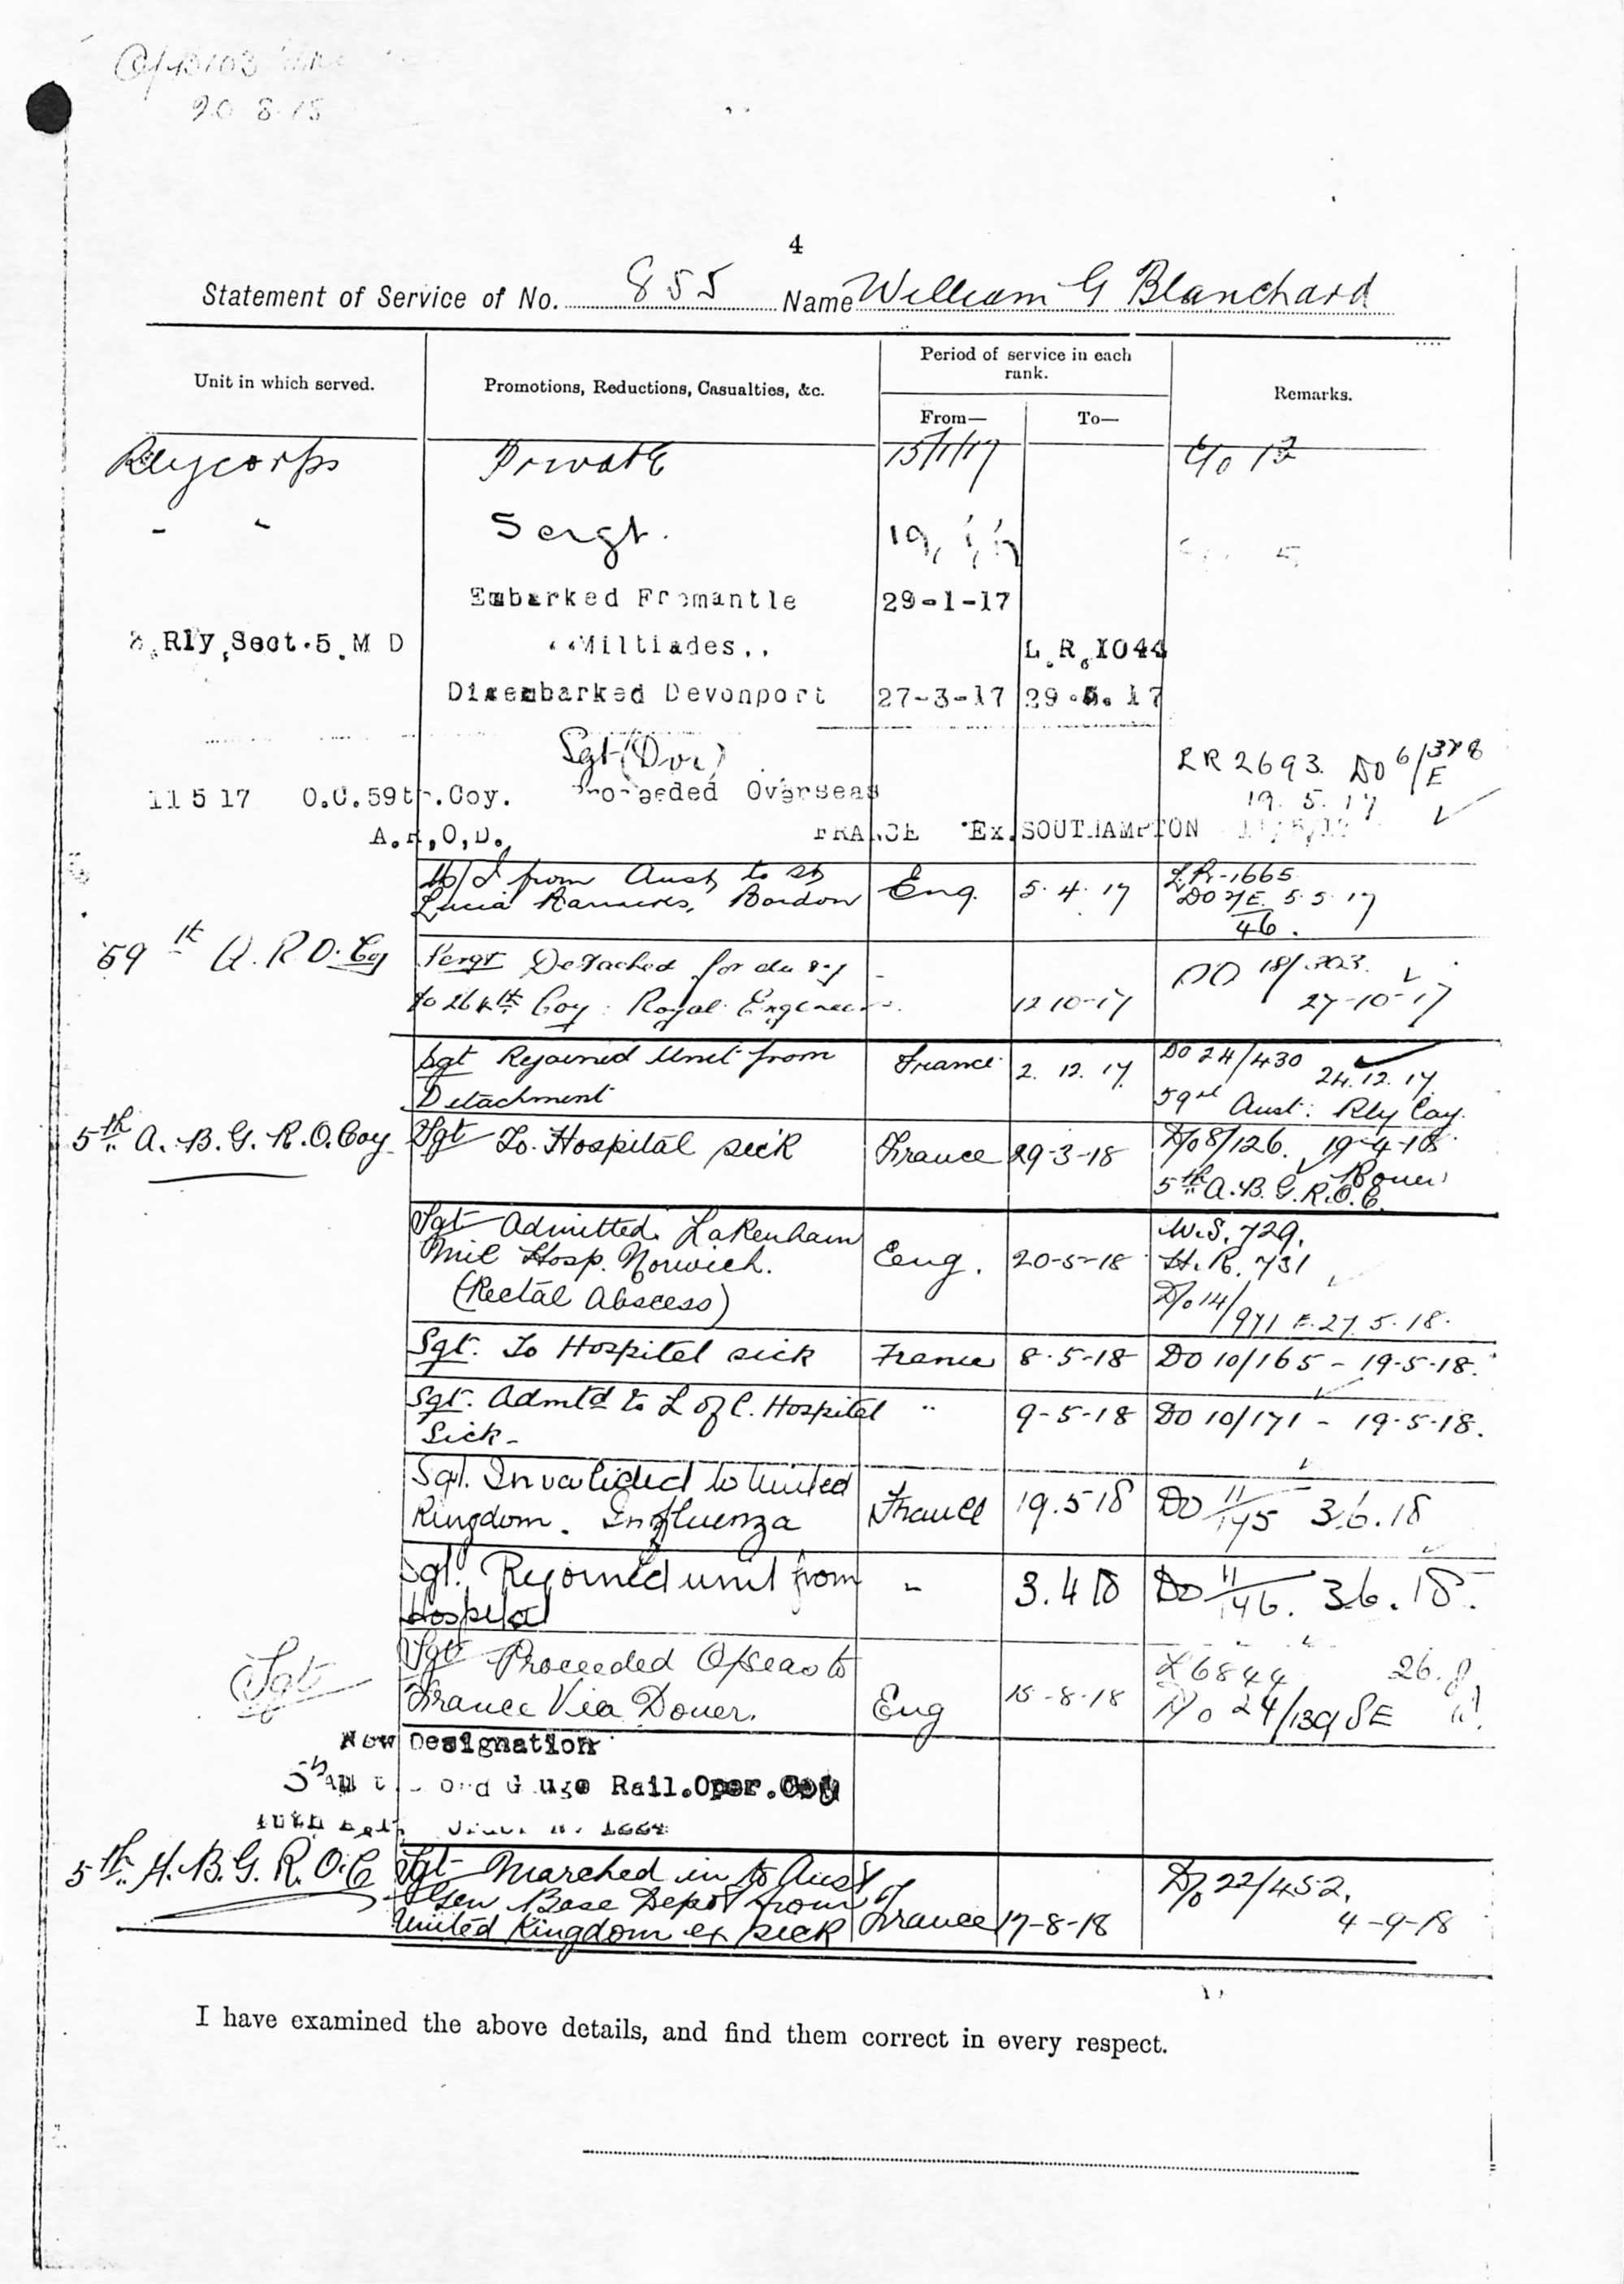 20 8 18
4
Statement of Service of No. 855 Name William G Blanchard
Unit in which served.
Promotions, Reductions, Casualties, &c.
Period of service in each rank.
From—
To—
Remarks.
Rlycorps Private 15/1/17
" " Sergt. 19
Embarked Fremantle 29-1-17
Rly Sect. 5 M D "Miltiades" L.R.1044
Disembarked Devonport 27-3-17 29.5.17
Sgt
LR 2693 DO 6/378 E
11 5 17 O.C. 59th Coy. Proceeded Overseas 19.5.17
A.R.O.D. FRANCE Ex. SOUTHAMPTON
M/I from Aust, to St Eng. 5.4.17 LR-1665
Lucia Barracks, Bordon DO 7/E 5.5.17
46.
59th A.R.O. Coy Sergt Detached for duty - DO 18/303.
to 264th Coy. Royal Engineers. 12 10-17 27-10-17
Sgt Rejoined Unit from France 2.12.17. DO 24/430 24.12.17.
Detachment 59th Aust: Rly Coy.
5th A.B.G.R.O.Coy Sgt To Hospital sick France 29-3-18 D/o 8/126. 19-4-18
Rouen
5th A.B.G.R.O.C.
Sgt Admitted Lakenham W.S. 729.
Mil Hosp. Norwich. Eng. 20-5-18 H.R. 731
(Rectal Abscess) D/o 14/971 E. 27.5.18.
Sgt. To Hospital sick France 8.5-18 DO 10/165 - 19-5-18.
Sgt. Admtd to L of C. Hospital " 9-5-18 DO 10/171 - 19-5-18.
Sick-
Sgt. Invalided to United
Kingdom. Influenza France 19.5 18 DO 11/145 3.6.18
Sgt. Rejoined unit from - 3.4 18 DO 11/146. 3.6.18.
Hospital
Sgt Sgt Proceeded O/seas to L6844 26.8
France Via Dover. Eng 15-8-18 D/o 24/139 SE
New Designation
5th Rail.Oper.Coy
1664
5th A.B.G.R.O.C Sgt Marched in to Aust D/o 22/452.
Gen Base Depot from
United Kingdom ex sick France 17-8-18 4-9-18
I have examined the above details, and find them correct in every respect.